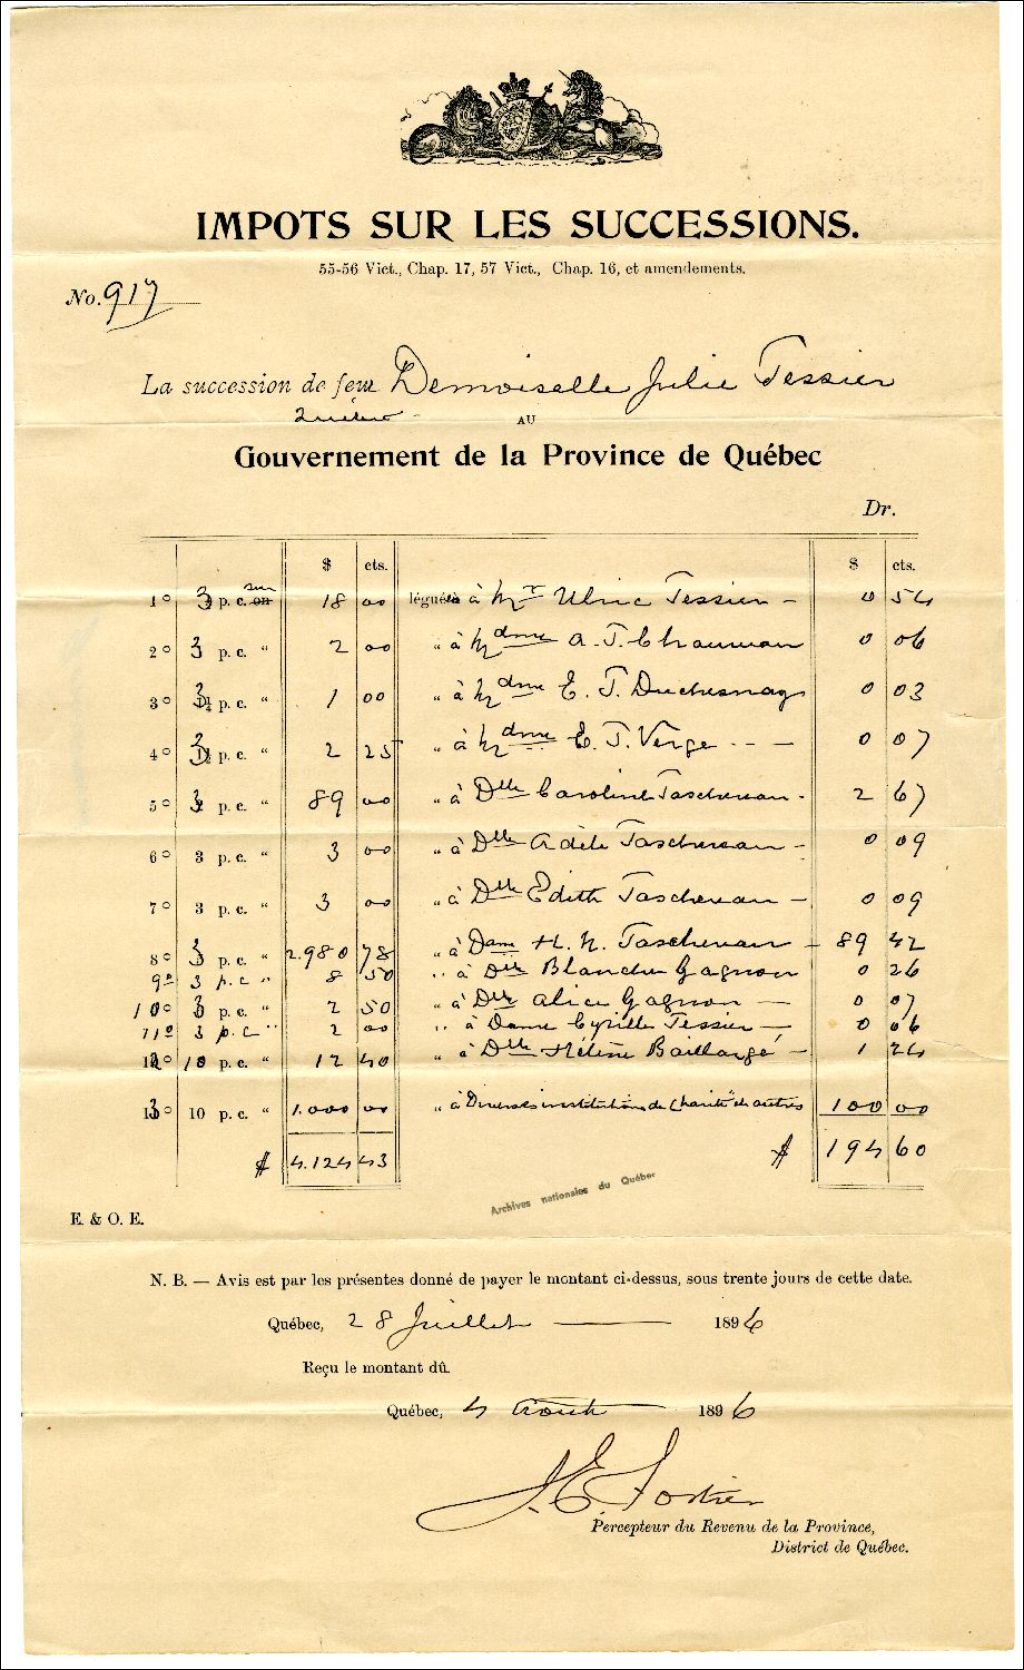 IMPOTS SUR LES SUCCESSIONS.
55-56 Vict., Chap. 17, 57 Vict., Chap. 16, et amendements.
No. 917
La succession de feu Demoiselle Julie Tessier
Québec
AU
Gouvernement de la Province de Québec
Dr.
$ cts. $ cts.
1° 3 p. c. sur 18 00 légués à Mr Ulric Tessier — 0 54
2° 3 p. c. " 2 00 " à Mdme A. T. Chauveau 0 06
3° 3 p. c. " 1 00 " à Mdme E. T. Duchesnay 0 03
4° 3 p. c. " 2 25 " à Mdme E. T. Verge - - — 0 07
5° 3 p. c. " 89 00 " à Dlle Caroline Taschereau - 2 67
6° 3 p. c. " 3 00 " à Dlle Adèle Taschereau - 0 09
7° 3 p. c. " 3 00 " à Dlle Edith Taschereau — 0 09
8° 3 p. c. " 2.980 78 " à Dame H. N. Taschereau — 89 42
9° 3 p. c " 8 50 " à Dlle Blanche Gagnon 0 26
10° 3 p. c. " 2 50 " à Dlle Alice Gagnon — 0 07
11° 3 p. c " 2 00 " à Dame Cyrille Tessier — 0 06
12° 10 p. c. " 12 40 " à Dlle Hélène Baillargé — 1 24
13° 10 p. c. " 1.000 00 " à Diverses institutions de Charité & autres 100 00
$ 4.124 43 $ 194 60
Archives nationales du Québec
E. & O. E.
N. B. — Avis est par les présentes donné de payer le montant ci-dessus, sous trente jours de cette date.
Québec, 28 Juillet — 1896
Reçu le montant dû.
Québec, 4 Août — 1896
J. E. Fortier
Percepteur du Revenu de la Province,
District de Québec.